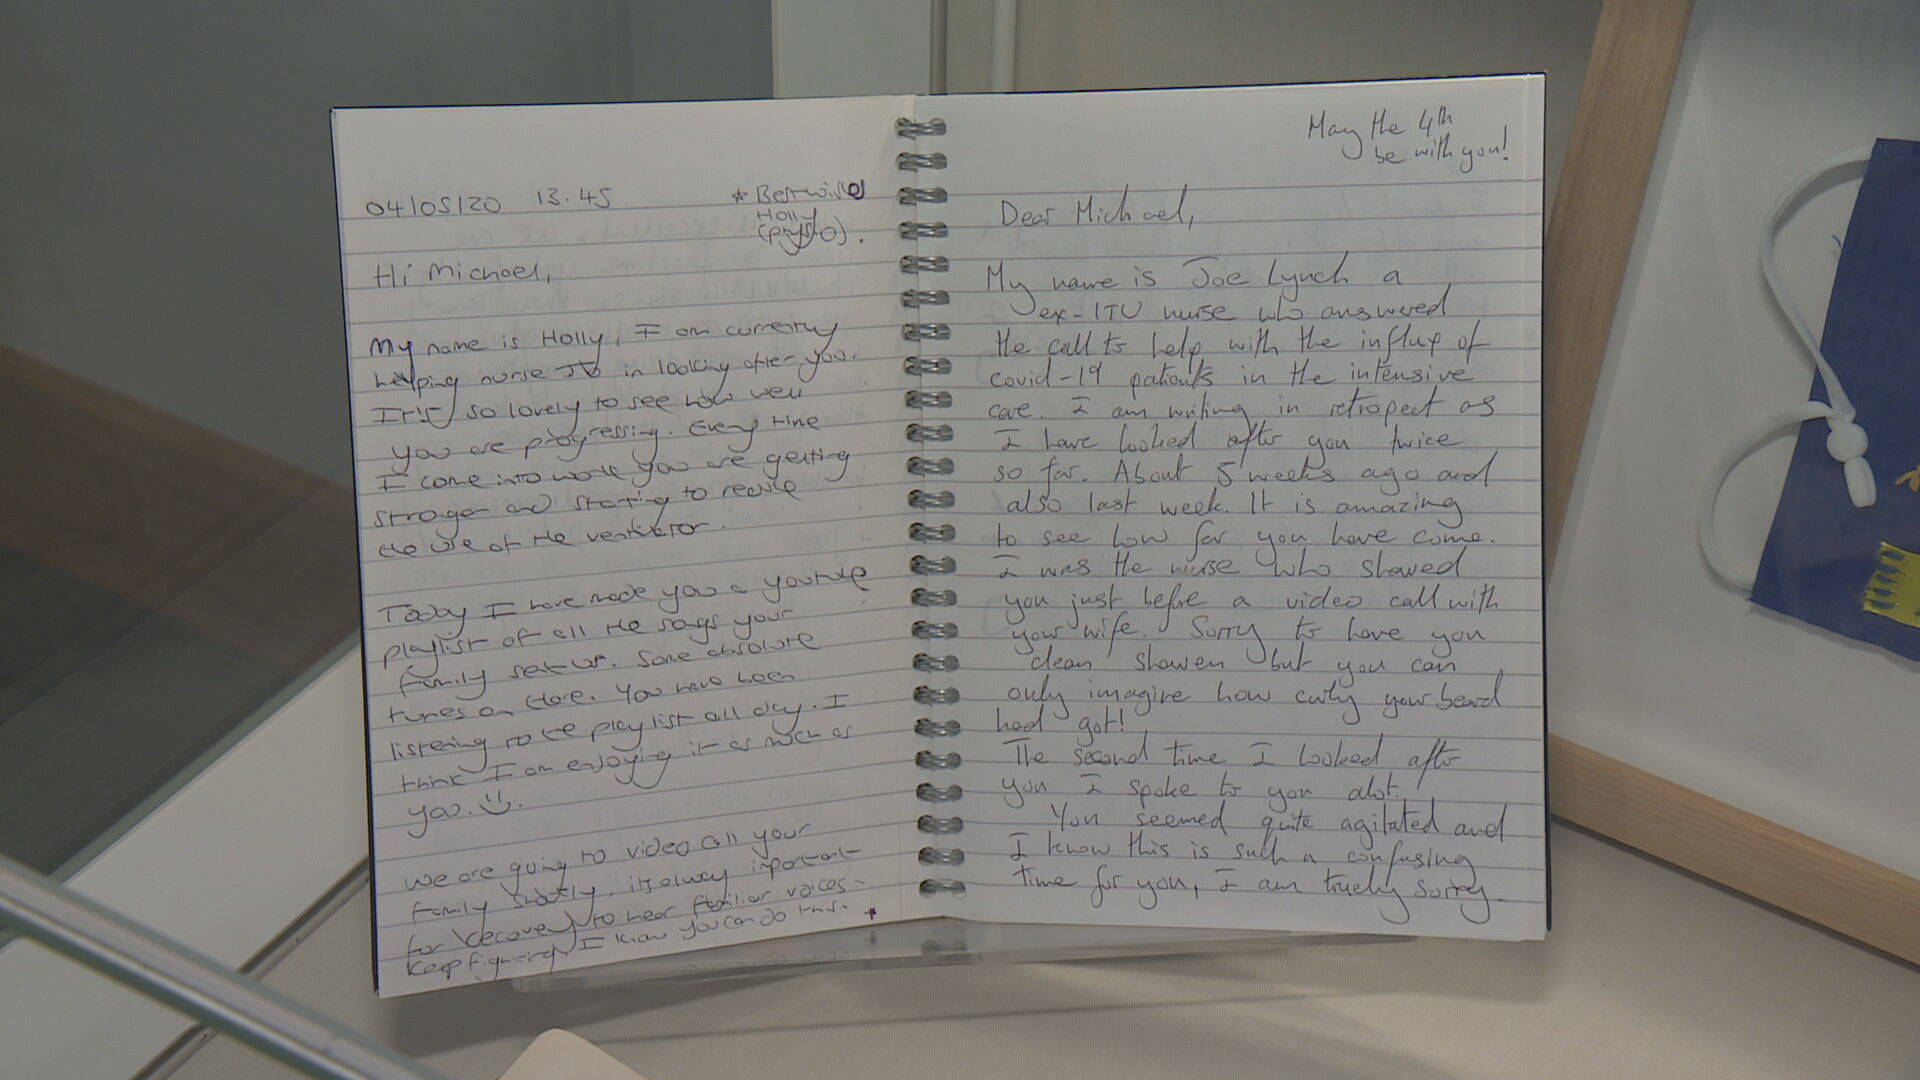 04/05/20 13.45
* Best wishes
Holly
(physio).
Hi Michael,
My name is Holly, I am currently
helping nurse in looking after you.
It's so lovely to see how well
you are progressing. Every time
I come into work you are getting
stronger and starting to reduce
the use of the ventilator.
Today I have made you a youtube
playlist of all the songs your
family sent us. Some absolute
tunes on there. You have been
listening to the playlist all day. I
think I am enjoying it as much as
you. :).
We are going to video call your
family shortly, its always important
for recovery to hear familiar voices -
keep fighting I know you can do this. *
May the 4th
be with you!
Dear Michael,
My name is Joe Lynch a
ex-ITU nurse who answered
the call to help with the influx of
covid-19 patients in the intensive
care. I am writing in retropect as
I have looked after you twice
so far. About 5 weeks ago and
also last week. It is amazing
to see how far you have come.
I was the nurse who shaved
you just before a video call with
your wife. Sorry to have you
clean shaven but you can
only imagine how curly your beard
had got!
The second time I looked after
you I spoke to you alot.
You seemed quite agitated and
I know this is such a confusing
time for you, I am truely sorry.